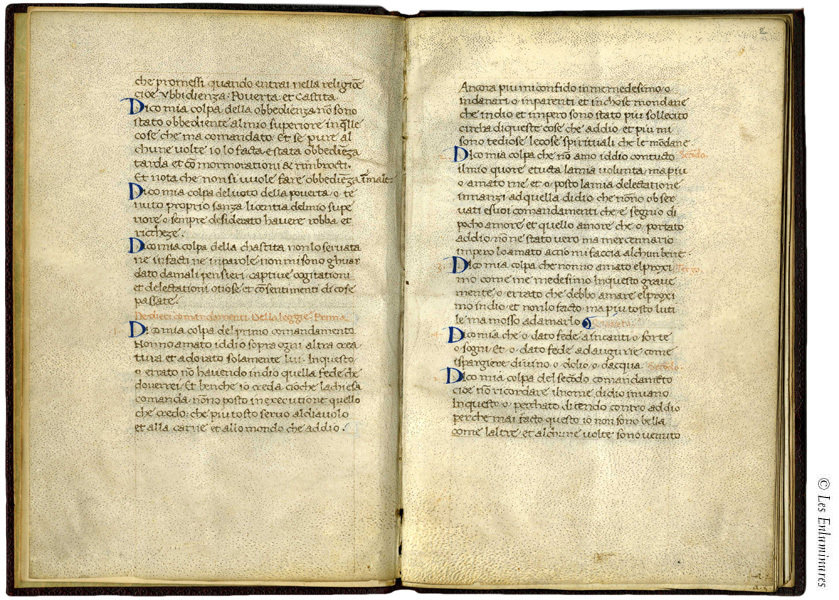 che promessi quando entrai nella religiōe
cioe Vbbidienza. Pouerta et Castita.
Dico mia colpa della obbedienza nō sono
stato obbediente al mio superiore in q̄lle
cose che ma comandato. Et se pure al
chune volte io lo facta e stata obbediēza
tarda et cō mormorationi & rimbrocti.
Et nota che non si vuole fare obbediēza
Dico mia colpa del uoto della pouerta o te
nuto proprio sanza licentia del mio supe
riore o sempre desiderato hauere robba et
richeze.
Dico mia colpa della chastita non lo seruata
ne in facti ne in parole non mi sono ghuar
dato da mali pensieri captiue cogitationi
et delectationi otiose et cōsentimenti di cose
passate.
De dieci comandamenti della leggie. Prima
Dico mia colpa del primo comandamento
Non no amato iddio sopra ogni altra crea
tura et adorato solamente lui. In questo
o errato nō hauendo in dio quella fede che
douerrei. Et benche io creda cio che lachiesa
comanda. nōno posto in executione quello
che credo. che piu tosto seruo al diauolo
et alla carne et allo mondo che addio.
2
Ancora piu mi confido in me medesimo o
in danari o in parenti et in chose mondane
che in dio et impero sono stato piu sollecito
circha di queste cose che addio. et piu mi
sono tediose le cose spirituali che le mōdane
Dico mia colpa che nō amo iddio con tucto Secōdo.
il mio quore et tucta la mia volunta. ma piu
o amato me et o posto la mia delectatione
innanzi ad quella di dio che nōno obser
uati e suoi comandamenti che e segnio di
pocho amore et quello amore che o portato
addio nō ne stato vero ma mercennario
impero lo amato acio mi faccia alchun bene
Dico mia colpa che non no amato el proxi Terzo.
mo come me medesimo in questo graue
mente o errato che debbo amare el proxi
mo in dio et non lo facto ma piu tosto luti
le ma mosso ad amarlo
Dico mia che o dato fede a incanti o sorte
o sogni et o dato fede ad augurie come
ispargiere di uino o dolio o dacqua.
Dico mia colpa del secōdo comandamēto
cioe nō ricordare il nome di dio in uano
In questo o pecchato dicendo contro addio
perche mai facto questo io non sono bella
come laltre et alchune volte sono venuto
© Les Enluminures